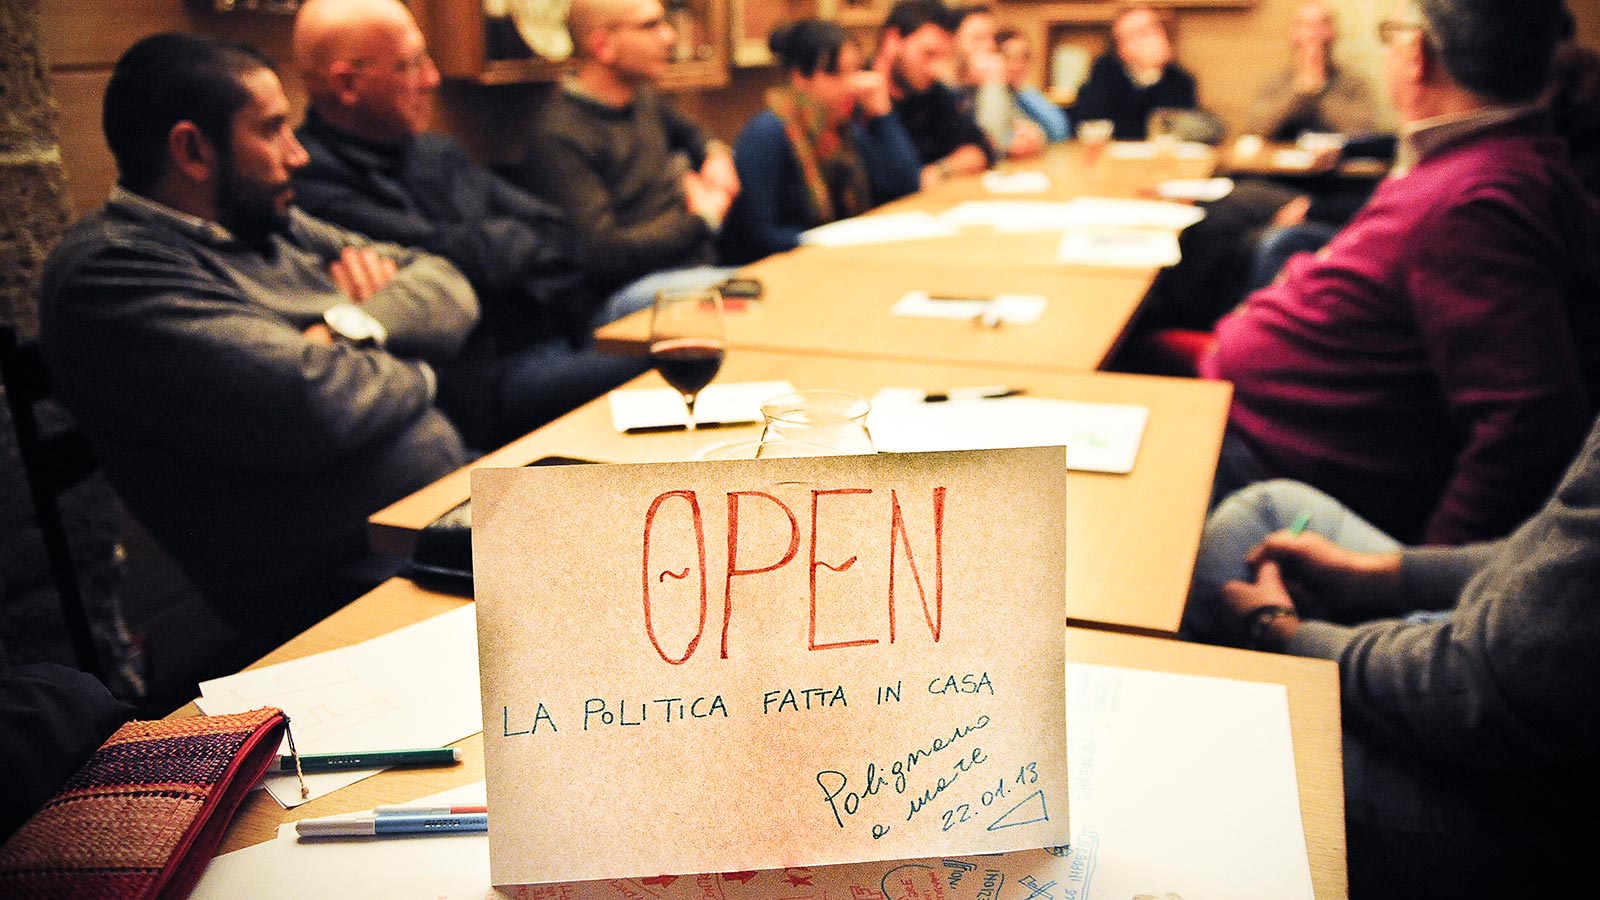 OPEN
LA POLITICA FATTA IN CASA
Polignano
a mare
22.01.13
GIOTTO